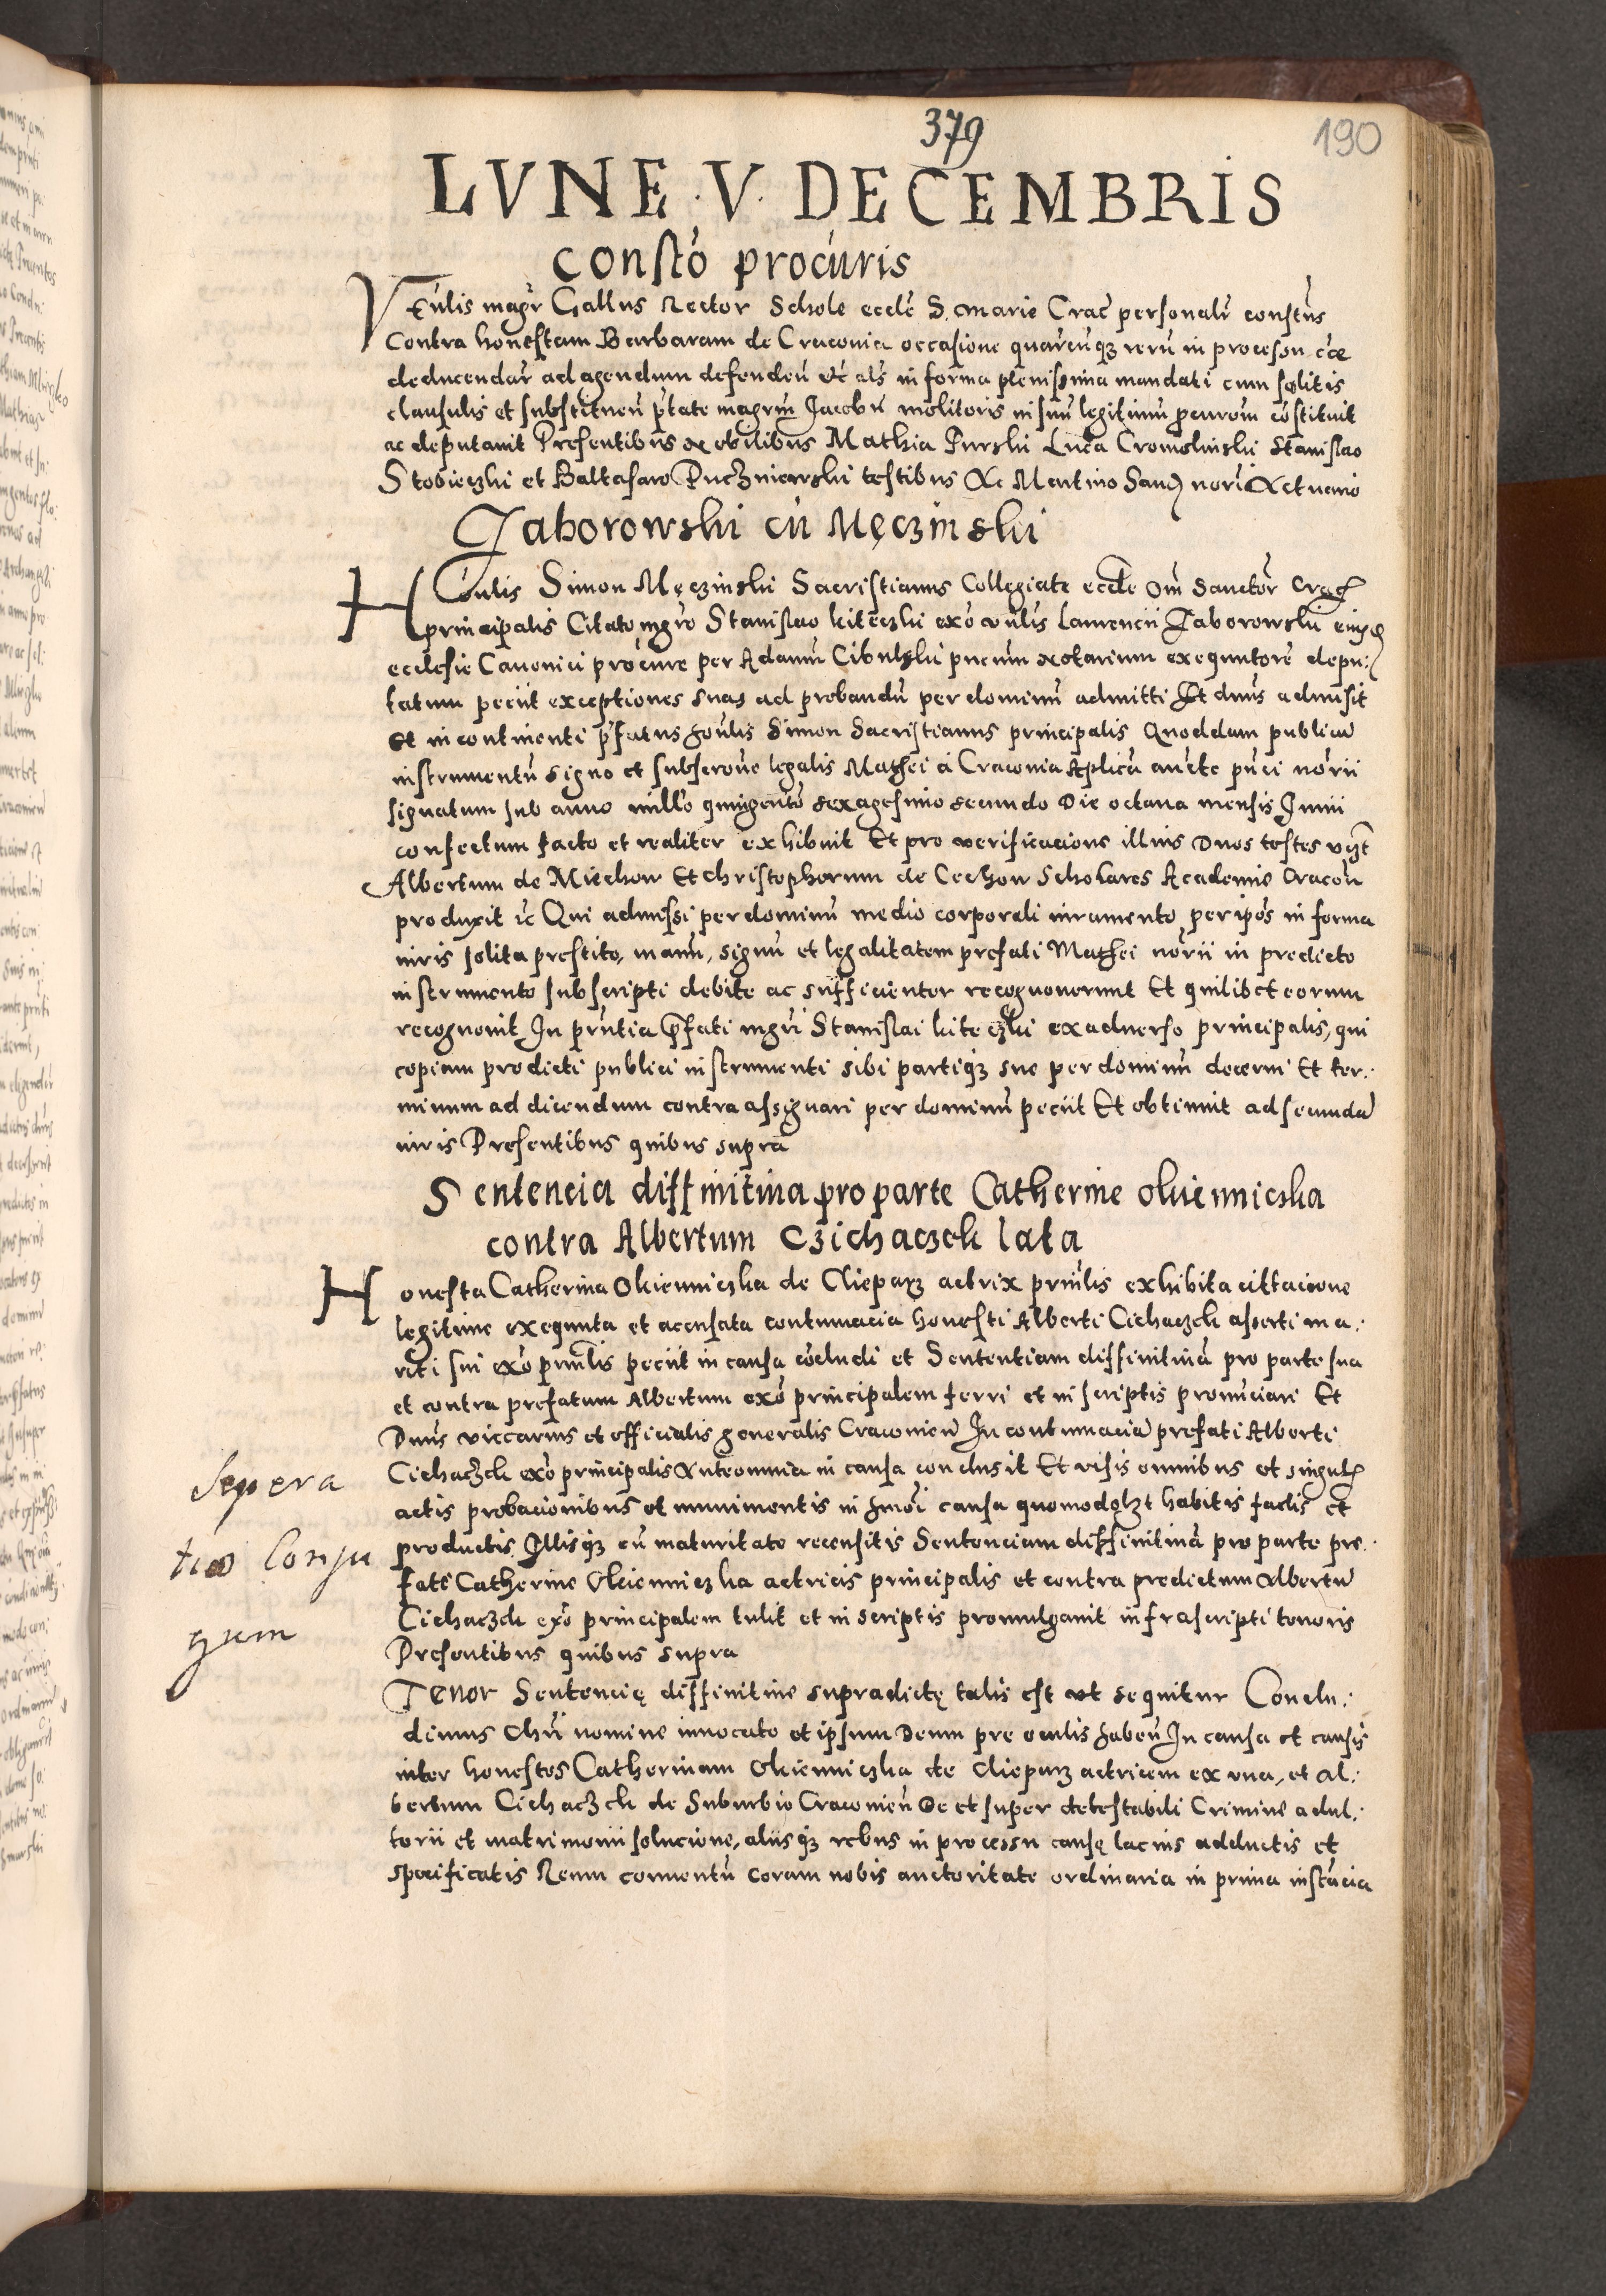 379
190
LVNE · V · DECEMBRIS
Constō procuris
Vtulis magr Gallus Rector Schole eccle S. Marie Crac personalr constus
Contra honestam Barbaram de Craconia occasione quarcuqz reru in processu cce
deducendar ad agendum defendeu etc als in forma plenissima mandati cum solitis
clausulis et substitueu ptate magrm Jacobu molitoris in suu legitimu pcurom cōstituit
ac deputauit Presentibus Nobilibus Mathia Purski Luca Cromolinski Stanislao
Stobieczki et Baltasaro Puczniewski testibus Ac Martino Sand norio Actuario
Jaborowski cū Męczinski
Honlis Simon Męczinski Sacristianus Collegiate eccle Om Sanctor Crac
principalis Citato mgro Stanislao kiteczki exo vnlis Laurencii Jaborowski eiusd
ecclesie Canonici procure per Adamu Cibulski pucum notarium exequutore depu:
tatum peciit exceptiones suas ad probandu per dominu admitti Et dnus admisit
Et in continenti pfatus honlis Simon Sacristianus principalis Quoddam publicu
instrumentu signo et subscrone legalis Mathei a Craconia Aplica aucte puci norii
signatum sub anno millo quigento sexagesimo secundo Die octaua mensis Junii
confectum facto et realiter exhibuit Et pro verificacione illius Duos testes vzt
Albertum de Miechow Et Christophorum de Czchow Scholares Academie Cracou
produxit ic Qui admissi per dominu medio corporali iuramento, per ipos in forma
iuris solita prestito, manu, signu et legalitatem prefati Mathei norii in predicto
instrumento subscripti debite ac sufficienter recognouerunt Et quilibet eorum
recognouit In pruntia pfati mgri Stanislai kiteczki ex aduerso principalis, qui
copiam predicti publici instrumenti sibi partiqz sue per dominu decerni Et ter:
minum ad dicendum contra assignari per dominu peciit Et obtinuit ad secunda
iuris Presentibus quibus supra
Sentencia diffinitiua pro parte Catherine Okiennicska
contra Albertum Czichaczek lata
Honesta Catherina Okienniczka de Clieparz actrix prnlis exhibita cittacione
legitime exequuta et accusata contumacia honesti Alberti Cichaczek asserti ma:
riti sui exo prnlis peciit in causa cōcludi et Sententiam diffinitiuā pro parte sua
et contra prefatum Albertum exo principalem ferri et in scriptis pronuciari Et
Dnus viccarius et officialis generalis Cracouien In contumacia prefati Alberti
Cichaczek exo principalis Ante omnia in causa conclusit Et visis omnibus et singul
actis probacionibus et munimentis in hmoi causa quomodolzt habitis factis et
productis Illisqz cu maturitate recensitis Sentenciam diffinitiuā pro parte pre:
fate Catherine Okienniczka actricis principalis et contra predictum Albertu
Cichaczek exo principalem tulit et in scriptis promulgauit infrascripti tenoris
Presentibus quibus supra
Sepera
tio Conju
gum
Tenor Sentencię diffinitiue supradictę talis est vt sequitur Conclu:
dimus Chri nomine inuocato et ipsum Deum pre oculis habeu In causa et causis
inter honestos Catherinam Okienniczka de Clieparz actricem ex vna, et Al:
bertum Cichaczek de Suburbio Cracouieu De et super detestabili Crimine adul:
terii et matrimonii solucione, aliisqz rebus in processu causę lacius adductis et
specificatis Reum conuentu coram nobis auctoritate ordinaria in prima instacia